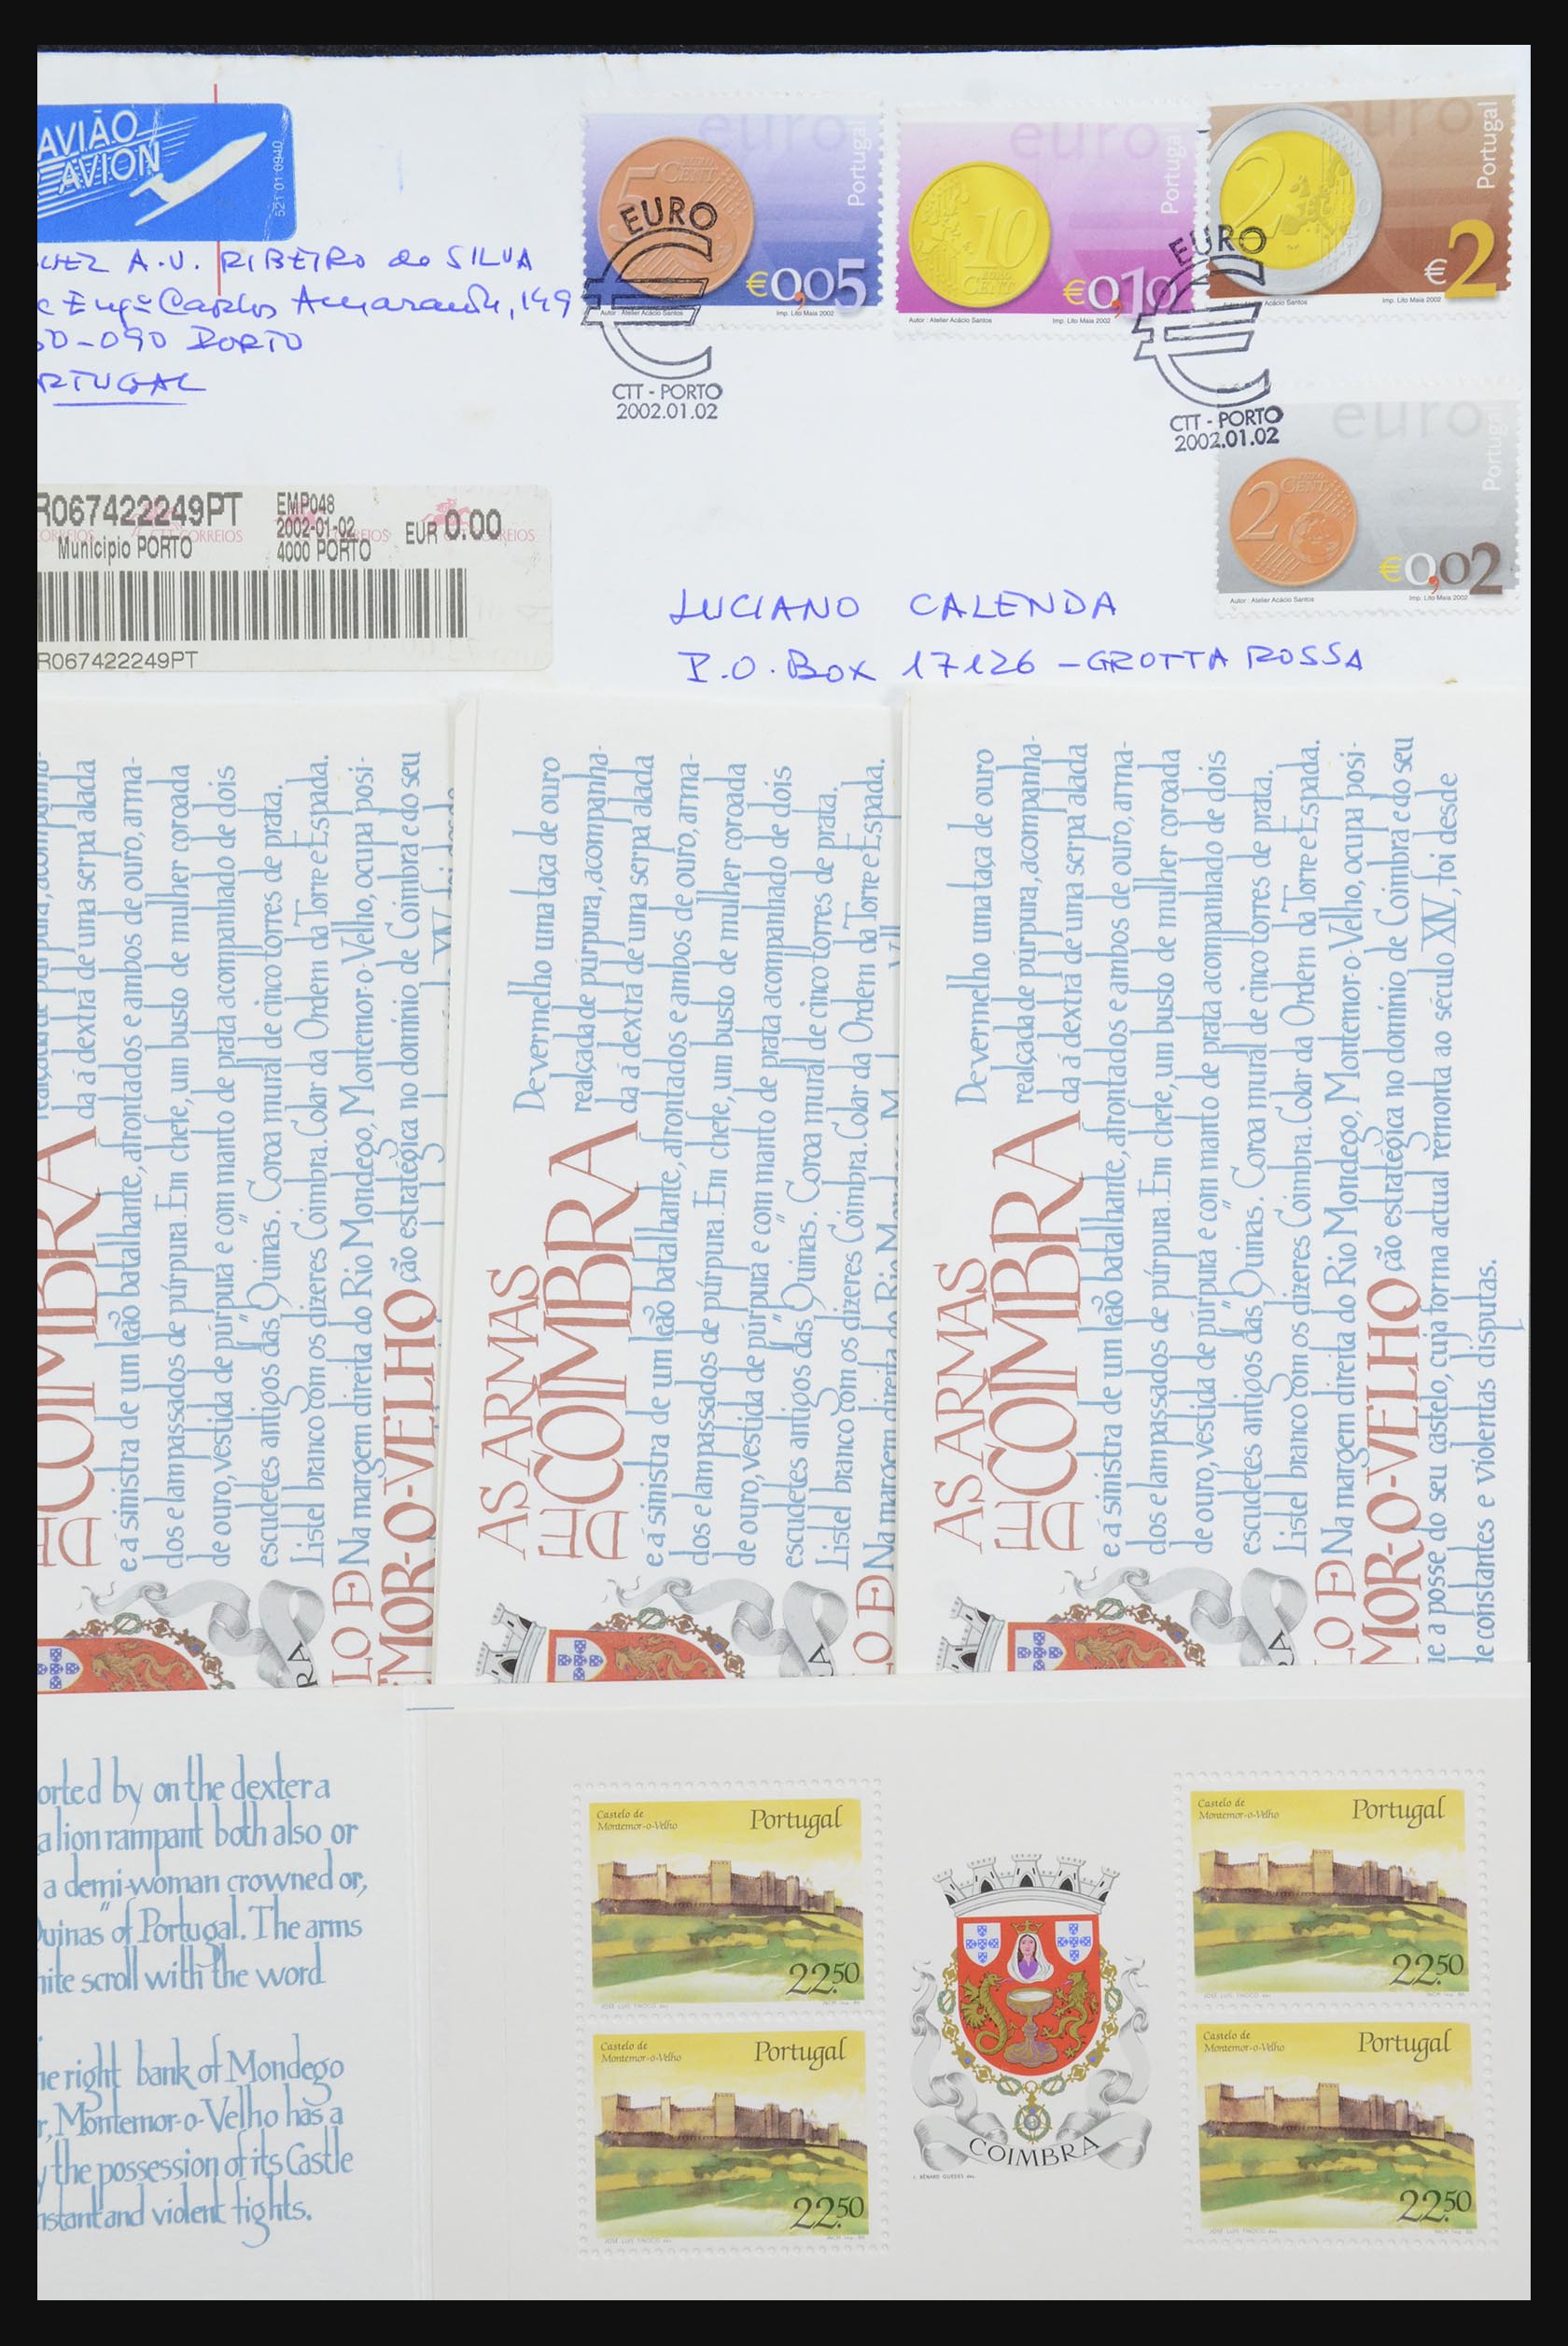 AVIÃO
AVION
521 01 0940
A.V. RIBEIRO da SILVA
Engº Carlos Amarante, 149
-090 PORTO
RTUGAL
euro
Portugal
5
EURO
CENT
€0,05
Autor : Atelier Acácio Santos
Imp. Lito Maia 2002
euro
Portugal
10
EURO
CENT
€0,10
Autor : Atelier Acácio Santos
Imp. Lito Maia 2002
euro
Portugal
2
EURO
€2
Autor : Atelier Acácio Santos
Imp. Lito Maia 2002
EURO
CTT - PORTO
2002.01.02
EURO
CTT - PORTO
2002.01.02
euro
Portugal
2
EURO
CENT
€0,02
Autor : Atelier Acácio Santos
Imp. Lito Maia 2002
R067422249PT
EMP048
2002-01-02
4000 PORTO
EUR 0.00
Município PORTO
CTT CORREIOS
R067422249PT
LUCIANO CALENDA
P.O. BOX 17126 - GROTTA ROSSA
DE COIMBRA
da á dextra de uma serpa alada
e á sinistra de um leão batalhante, afrontados e ambos de ouro, arma-
dos e lampassados de púrpura. Em chefe, um busto de mulher coroada
de ouro, vestida de púrpura e com manto de prata acompanhado de dois
escudetes antigos das "Quinas". Coroa mural de cinco torres de prata.
Listel branco com os dizeres Coimbra. Colar da Ordem da Torre e Espada.
LO D Na margem direita do Rio Mondego, Montemor-o-Velho, ocupa posi-
MOR-O-VELHO ção estratégica no domínio de Coimbra e do seu
AS ARMAS De vermelho uma taça de ouro
DE COIMBRA realçada de púrpura, acompanha-
da á dextra de uma serpa alada
e á sinistra de um leão batalhante, afrontados e ambos de ouro, arma-
dos e lampassados de púrpura. Em chefe, um busto de mulher coroada
de ouro, vestida de púrpura e com manto de prata acompanhado de dois
escudetes antigos das "Quinas". Coroa mural de cinco torres de prata.
Listel branco com os dizeres Coimbra. Colar da Ordem da Torre e Espada.
LO D Na margem direita do Rio
AS ARMAS De vermelho uma taça de ouro
DE COIMBRA realçada de púrpura, acompanha-
da á dextra de uma serpa alada
e á sinistra de um leão batalhante, afrontados e ambos de ouro, arma-
dos e lampassados de púrpura. Em chefe, um busto de mulher coroada
de ouro, vestida de púrpura e com manto de prata acompanhado de dois
escudetes antigos das "Quinas". Coroa mural de cinco torres de prata.
Listel branco com os dizeres Coimbra. Colar da Ordem da Torre e Espada.
LO D Na margem direita do Rio Mondego, Montemor-o-Velho, ocupa posi-
MOR-O-VELHO ção estratégica no domínio de Coimbra e do seu
e a posse do seu castelo, cuja forma actual remonta ao século XIV, foi desde
le constantes e violentas disputas.
orted by on the dexter a
a lion rampant both also or
a demi-woman crowned or,
uinas" of Portugal. The arms
hite scroll with the word
he right bank of Mondego
r, Montemor-o-Velho has a
y the possession of its Castle
nstant and violent fights.
Castelo de
Montemor-o-Velho
Portugal
22.50
JOSÉ LUÍS TINOCO des.
INCM imp. 86
Castelo de
Montemor-o-Velho
Portugal
22.50
JOSÉ LUÍS TINOCO des.
INCM imp. 86
COIMBRA
J. BÉNARD GUEDES des.
Castelo de
Montemor-o-Velho
Portugal
22.50
JOSÉ LUÍS TINOCO des.
INCM imp. 86
Castelo de
Montemor-o-Velho
Portugal
22.50
JOSÉ LUÍS TINOCO des.
INCM imp. 86